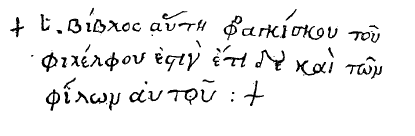 + ἑ. Βίβλος αὕτη φραγκίσκου τοῦ
φιλέλφου ἐστὶν ἔτι δὲ καὶ τῶν
φίλων αὐτοῦ : +